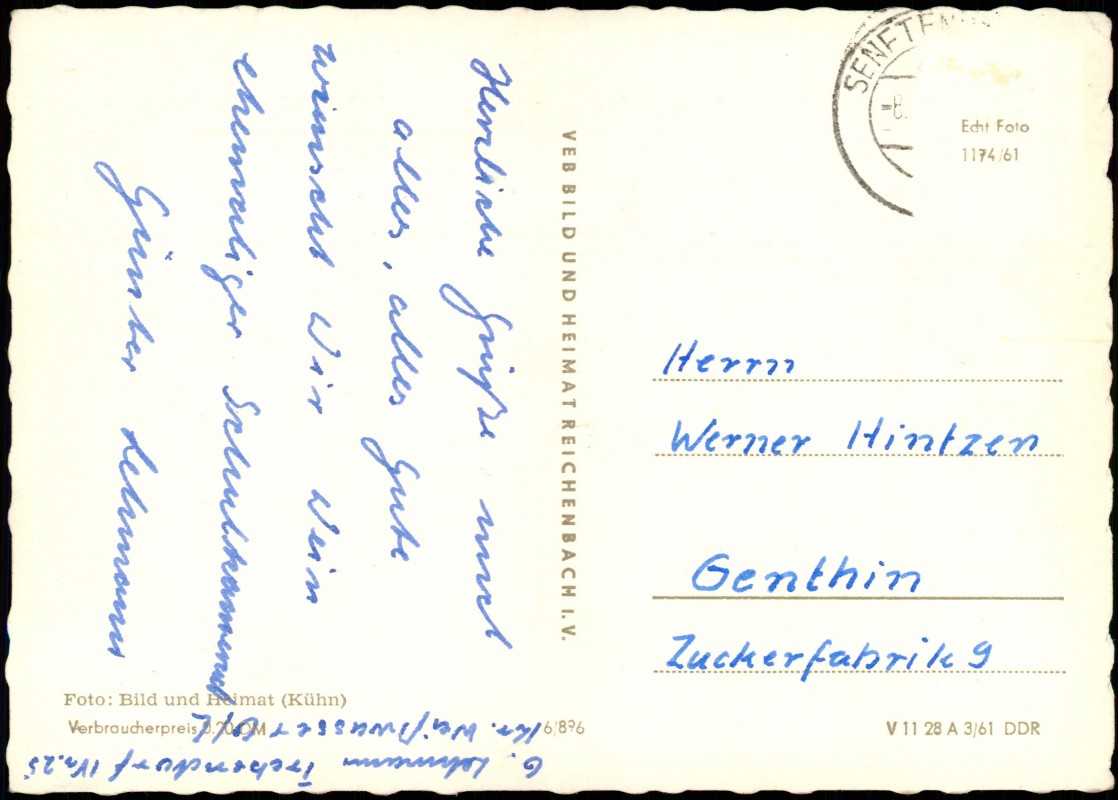 Herzliche Grüße und
alles, alles Gute
wünscht Dir Dein
ehemaliger Schulkamerad
Günter Lehmann
G. Lehmann Trebendorf Nr. 25
Kr. Weißwasser O/L
VEB BILD UND HEIMAT REICHENBACH I. V.
Foto: Bild und Heimat (Kühn)
Verbraucherpreis 0.20 DM
6/896
SENFTEN
Echt Foto
1174/61
Herrn
Werner Hintzen
Genthin
Zuckerfabrik 9
V 11 28 A 3/61 DDR